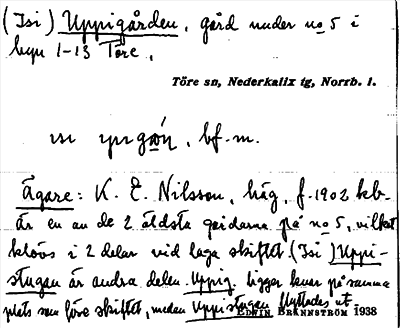 (Isi) Uppigården, gård under no 5 i
byn 1-13 Töre.
Töre sn, Nederkalix tg, Norrb. l.
bf. m.
Ägare: K. E. Nilsson, häg, f. 1902 kb.
är en av de 2 äldsta gårdarna på no 5, vilket
klövs i 2 delar vid laga skiftet. (Isi) Uppi-
stugan är andra delen. Uppig. ligger kvar på samma
plats som före skiftet, medan Uppistugan flyttades ut.
EDWIN BRÄNNSTRÖM 1938